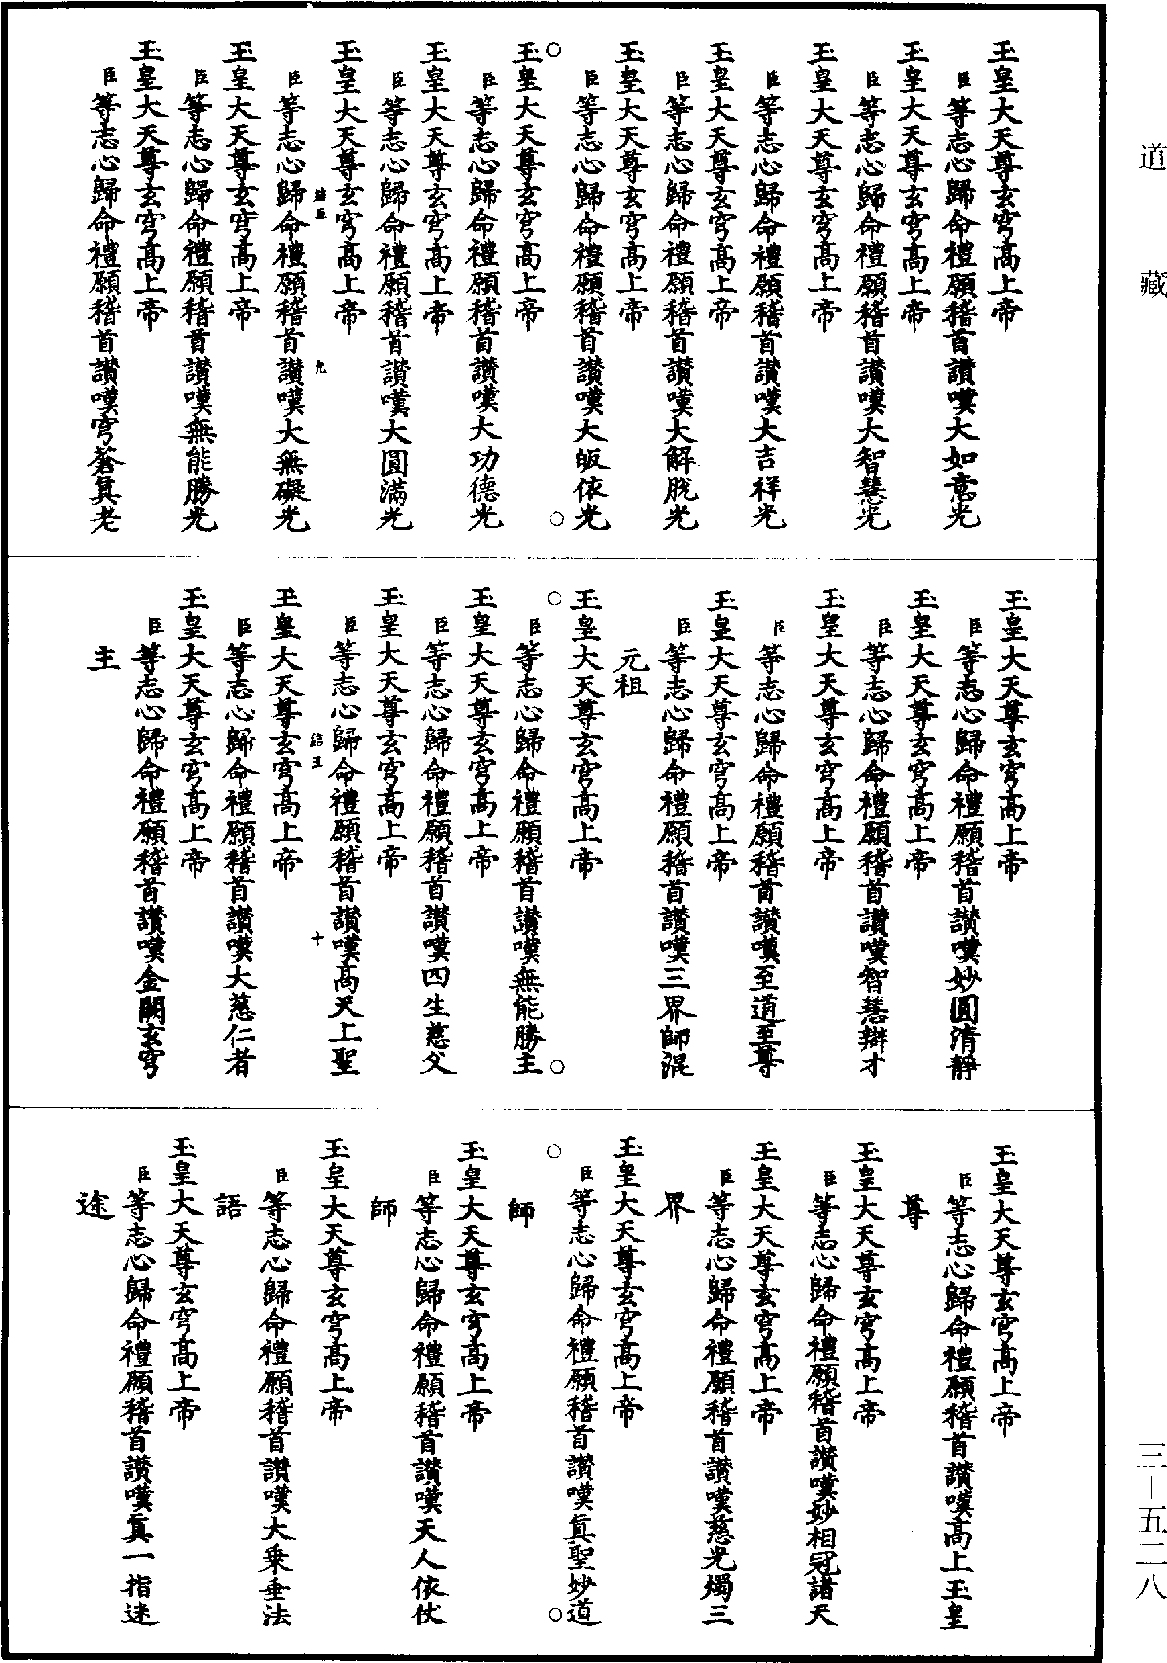 道藏
玉皇大天尊玄穹高上帝
臣等志心歸命禮願稽首讚嘆大如意光
玉皇大天尊玄穹高上帝
臣等志心歸命禮願稽首讚嘆大智慧光
玉皇大天尊玄穹高上帝
臣等志心歸命禮願稽首讚嘆大吉祥光
玉皇大天尊玄穹高上帝
臣等志心歸命禮願稽首讚嘆大解脫光
玉皇大天尊玄穹高上帝
臣等志心歸命禮願稽首讚嘆大皈依光
○ ○
玉皇大天尊玄穹高上帝
臣等志心歸命禮願稽首讚嘆大功德光
玉皇大天尊玄穹高上帝
臣等志心歸命禮願稽首讚嘆大圓滿光
玉皇大天尊玄穹高上帝
九
臣等志心歸命禮願稽首讚嘆大無礙光
玉皇大天尊玄穹高上帝
臣等志心歸命禮願稽首讚嘆無能勝光
玉皇大天尊玄穹高上帝
臣等志心歸命禮願稽首讚嘆穹蒼真老
玉皇大天尊玄穹高上帝
臣等志心歸命禮願稽首讚嘆妙圓清靜
玉皇大天尊玄穹高上帝
臣等志心歸命禮願稽首讚嘆智慧辯才
玉皇大天尊玄穹高上帝
臣等志心歸命禮願稽首讚嘆至道至尊
玉皇大天尊玄穹高上帝
臣等志心歸命禮願稽首讚嘆三界師混
元祖
玉皇大天尊玄穹高上帝
○ ○
臣等志心歸命禮願稽首讚嘆無能勝主
玉皇大天尊玄穹高上帝
臣等志心歸命禮願稽首讚嘆四生慈父
玉皇大天尊玄穹高上帝
臣等志心歸命禮願稽首讚嘆高天上聖
十
玉皇大天尊玄穹高上帝
臣等志心歸命禮願稽首讚嘆大慈仁者
玉皇大天尊玄穹高上帝
臣等志心歸命禮願稽首讚嘆金闕玄穹
主
玉皇大天尊玄穹高上帝
臣等志心歸命禮願稽首讚嘆高上玉皇
尊
玉皇大天尊玄穹高上帝
臣等志心歸命禮願稽首讚嘆妙相冠諸天
玉皇大天尊玄穹高上帝
臣等志心歸命禮願稽首讚嘆慈光燭三
界
玉皇大天尊玄穹高上帝
臣等志心歸命禮願稽首讚嘆真聖妙道
○ ○
師
玉皇大天尊玄穹高上帝
臣等志心歸命禮願稽首讚嘆天人依仗
師
玉皇大天尊玄穹高上帝
臣等志心歸命禮願稽首讚嘆大乘垂法
語
玉皇大天尊玄穹高上帝
臣等志心歸命禮願稽首讚嘆真一指迷
途
三－五二八